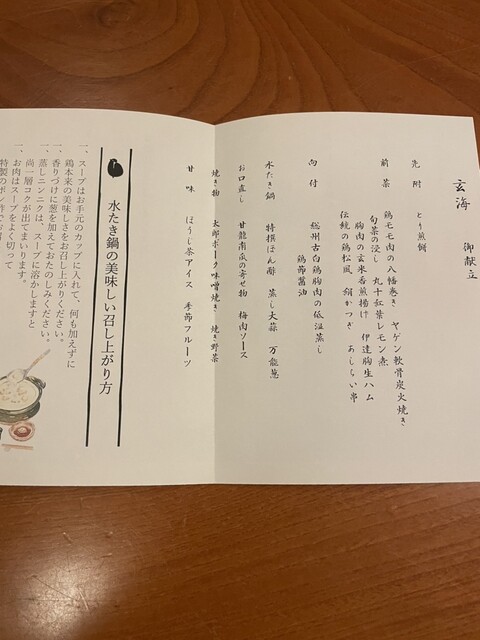 玄海　御献立
先附　とり煎餅
前菜　鶏モモ肉の八幡巻き　ヤゲン軟骨炭火焼き
旬菜の浸し　丸十紅葉レモン煮
胸肉の玄米香煎揚げ　伊達胸生ハム
伝統の鶏松風　絹かつぎ　あしらい串
向付　総州古白鶏胸肉の低温蒸し
鶏節醤油
水たき鍋　特撰ぽん酢　蒸し大蒜　万能葱
お口直し　甘龍南瓜の寄せ物　梅肉ソース
焼き物　太郎ポーク味噌焼き　焼き野菜
甘味　ほうじ茶アイス　季節フルーツ
水たき鍋の美味しい召し上がり方
一、スープはお手元のカップに入れて、何も加えずに
鶏本来の美味しさをお召し上がりください。
一、香りづけに葱を加えておたのしみください。
一、蒸しニンニクは、スープに溶かしますと
尚一層コクが出てまいります。
一、お肉はスープをよく切って
特製のポン酢でお召